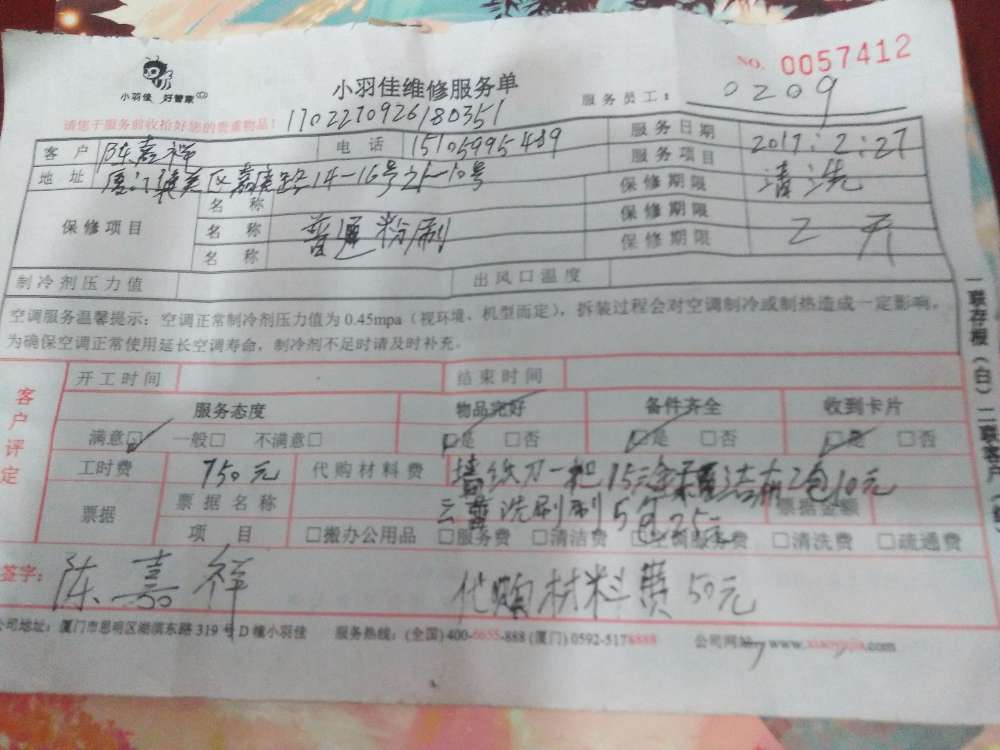 小羽佳 好管家
小羽佳维修服务单
NO. 0057412
服务员工: 0209
请您于服务前收拾好您的贵重物品! 170227092680351
客户 陈嘉祥 电话 15105995489 服务日期 2017:2:27
地址 厦门 区嘉 路14-16号 服务项目 清洗
保修项目 名称 保修期限
名称 普通粉刷 保修期限 2天
名称 保修期限
制冷剂压力值 出风口温度
空调服务温馨提示: 空调正常制冷剂压力值为 0.45mpa (视环境、机型而定), 拆装过程会对空调制冷或制热造成一定影响。
为确保空调正常使用延长空调寿命, 制冷剂不足时请及时补充。
客户评定
开工时间 结束时间
服务态度 物品完好 备件齐全 收到卡片
满意☑ 一般□ 不满意□ ☑是 □否 ☑是 □否 ☑是 □否
工时费 750元 代购材料费 墙纸刀一把15元 洁布2包10元
票据 票据名称 洗刷 5包25元 票据金额
项目 □搬办公用品 □服务费 □清洁费 □空调服务费 □清洗费 □疏通费
签字: 陈嘉祥 代购材料费50元
公司地址: 厦门市思明区湖滨东路 319 号 D 幢小羽佳 服务热线: (全国) 400-6655-888 (厦门) 0592-5178888 公司网址: www.xiaoyujia.com
一联存根 (白) 二联客户